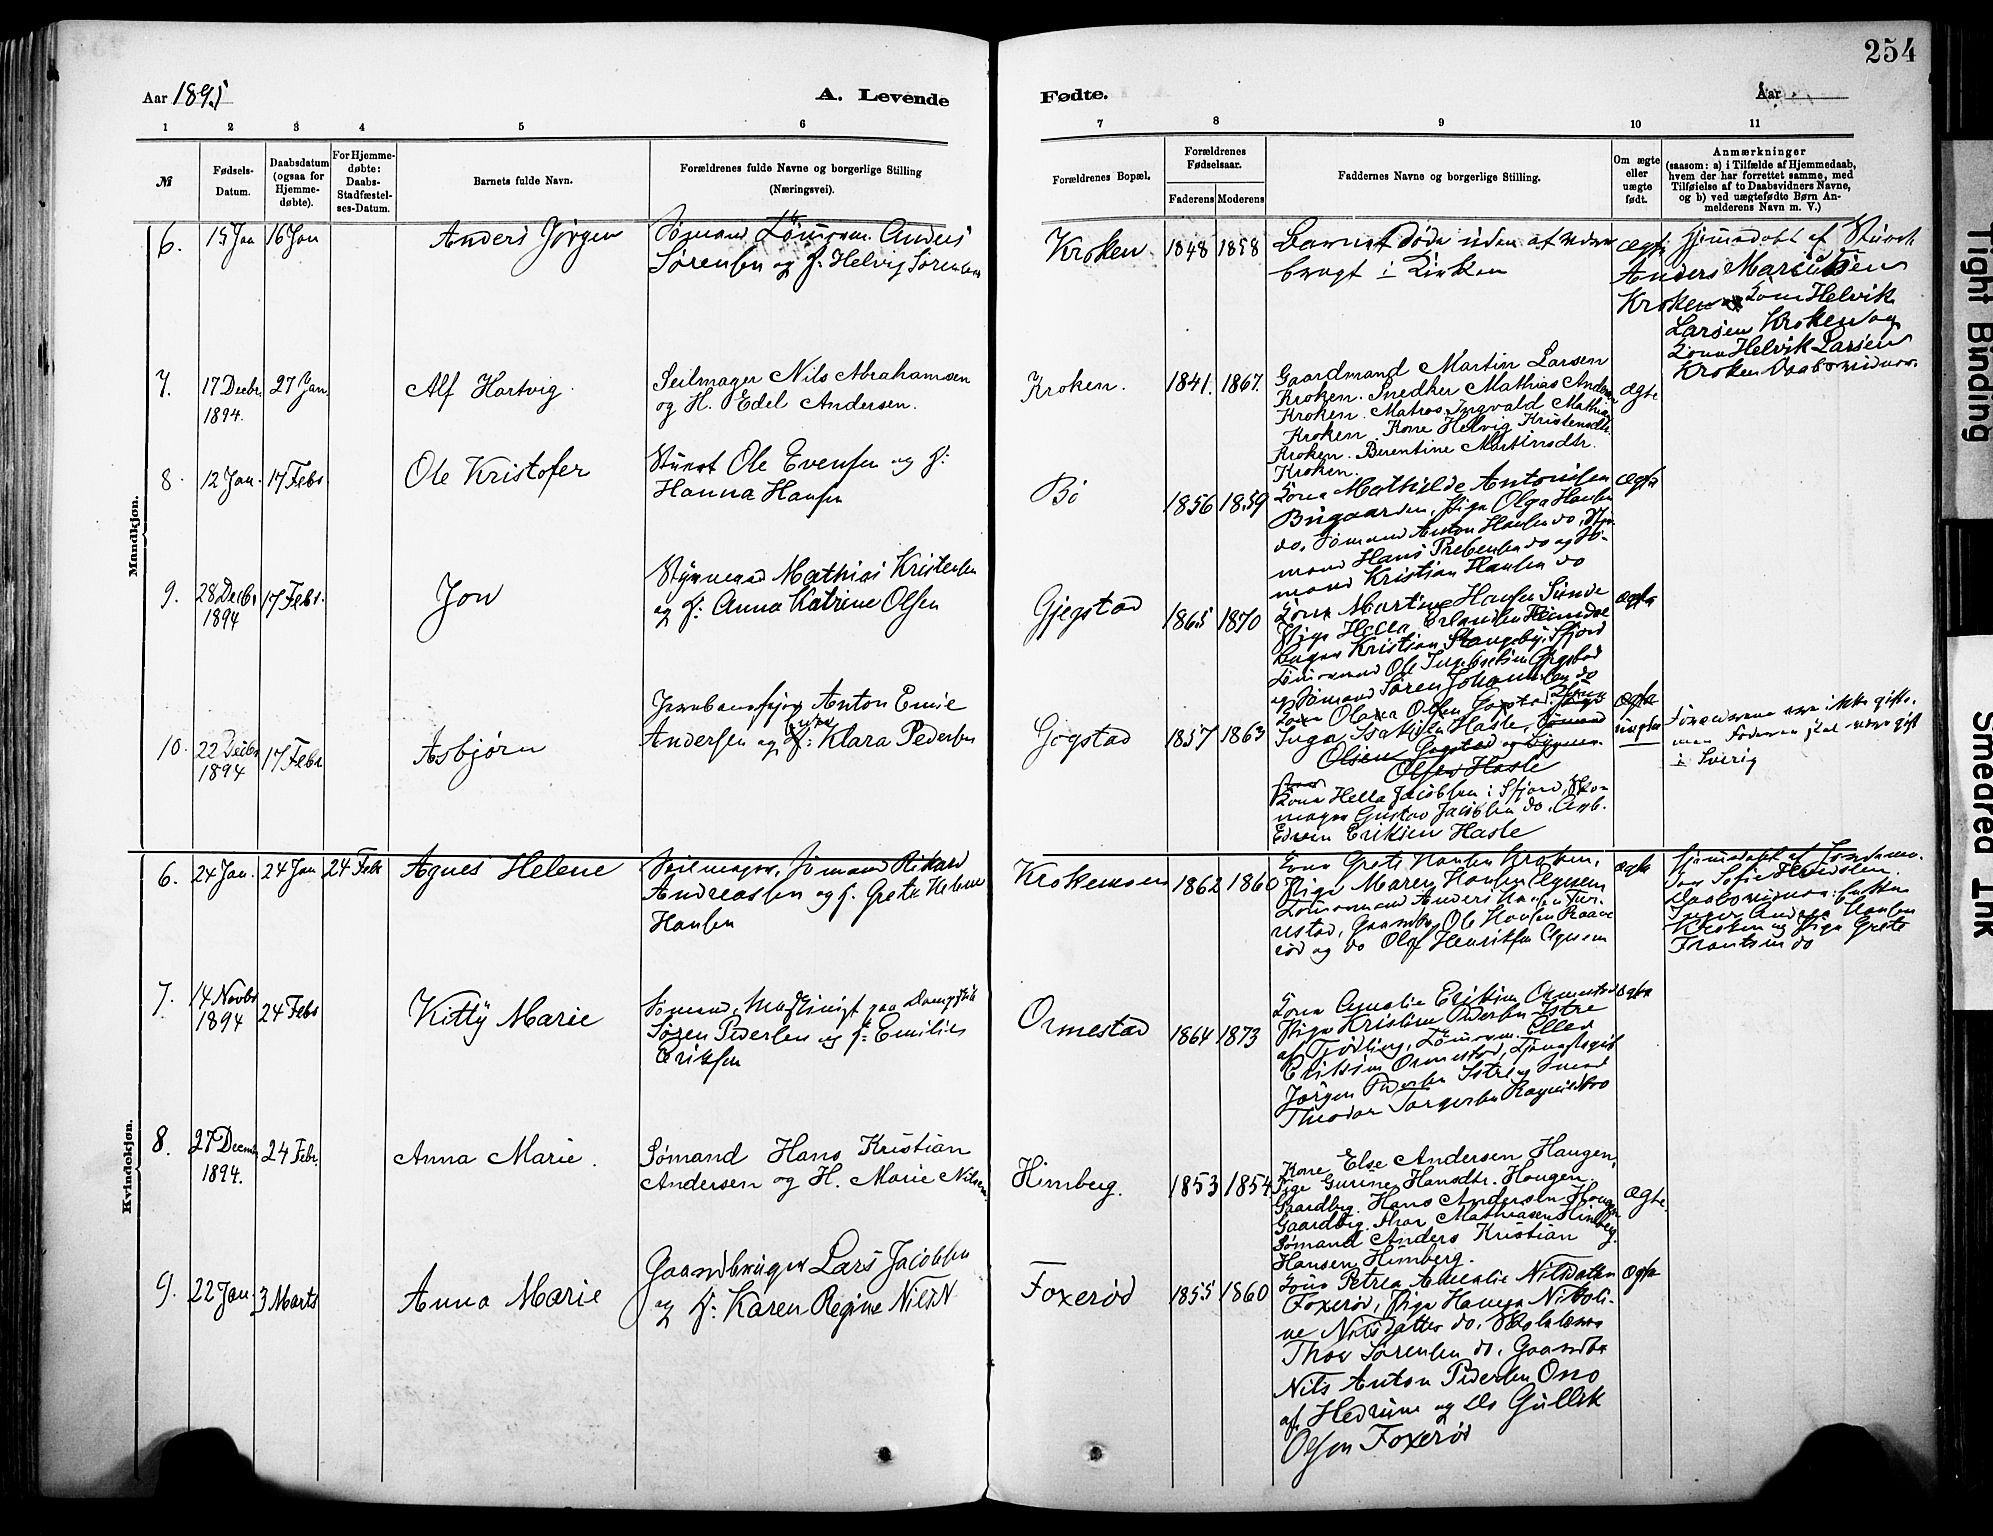 254
Aar 1895
A. Levende
Fødte.
Aar
1 2 3 4 5 6
7 8 9 10 11
№
Fødsels-
Datum.
Daabsdatum
(ogsaa for
Hjemme-
døbte).
For Hjemme-
døbte:
Daabs-
Stadfæstel-
ses-Datum.
Barnets fulde Navn.
Forældrenes fulde Navne og borgerlige Stilling
(Næringsvei).
Forældrenes Bopæl.
Forældrenes
Fødselsaar.
Faderens Moderens
Faddernes Navne og borgerlige Stilling.
Om ægte
eller
uægte
født.
Anmærkninger
(saasom: a) i Tilfælde af Hjemmedaab,
hvem der har forrettet samme, med
Tilføielse af to Daabsvidners Navne,
og b) ved uægtefødte Børn An-
melderens Navn m. V.)
Mandkjøn.
6. 15 Jan 16 Jan Anders Jørgen
Sømand Tømrerm. Anders
Sørensen og H: Helvig Sørensen
Kroken 1848 1858
Barnet døde uden at være
bragt i Kirken
ægte
Hjemmedøbt af
Anders
Kroken og Kone Helvik
Larsen Kroken og
Kone Helvik Larsen
Kroken Daabsvidner.
7. 17 Decbr 1894. 27 Jan. Alf Hartvig.
Seilmager Nils Abrahamsen
og H. Edel Andersen.
Kroken. 1841. 1867.
Gaardmand Martin Larsen
Kroken. Snedker Mathias Andersen
Kroken. Matros Ingvald Mathias
Kroken. Kone Helvig Kristensdtr.
Kroken. Berentine Martinsdtr.
Kroken.
ægte
8. 12 Jan. 17 Febr Ole Kristofer
Ole Evensen og H:
Hanna Hansen
Bø 1856 1859
Kone Mathilde Antonisen
Bugaarden, Pige Olga Hansen
do, Sømand Anton Hansen do,
mand Hans Prebensen do og Sø-
mand Kristian Hansen do
ægte
9. 28 Decbr 1894 17 Febr. Jon
Styrmand Mathias Kristensen
og H: Anna Katrine Olsen
Gjegstad 1865 1870
Kone Martine Hansen Sunde
Pige Hella Erlandsen
Kristian Stangeby, Sfjord
Tømmermand Ole Ingebretsen Gjegstad
og Sømand Søren Johannesen do
ægte
10. 22 Decbr 1894 17 Febr Asbjørn
Anton Emil
Andersen og Klara Pedersen
Gogstad 1857 1863
Kone Olava Olsen Gogstad, Pige
Inga Isaksen Hasle, Sømand
Olsen Gogstad og
Olsen Hasle
Kone Hella Jacobsen i Sfjord, Sko-
mager Gustav Jacobsen do. Arb.
Edvin Eriksen Hasle
ægte
uægte
Forældrene ere ikke gifte
men Faderen skal være gift
i Sverig
Kvindekjøn.
6. 24 Jan. 24 Jan 24 Febr Agnes Helene
Seilmager, Sømand Rikard
Andreassen og H. Grete Helene
Hansen
Krokemoen 1862 1860
Kone Grete Hansen Kroken,
Pige Maren Hansen
Tømmermand Anders Hansen
Gaardbr. Ole Hansen
og do Olaf Henriksen
ægte
Hjemmedøbt af Jordemo-
Sofie
Daabsvidner: Enken
Inger Andrea Hansen
Kroken og Pige Grete
Frantsen do
7. 14 Novbr 1894 24 Febr Kitty Marie
Sømand, Maskinist paa Dampskib
Søren Pedersen og H: Emilie
Eriksen
Ormestad 1864 1873
Kone Amalie Eriksen Ormestad
Pige Kristine Pedersen Istre
af Tjødling, Tømrerm. Ellev
Eriksen Ormestad,
Jørgen Pedersen Istre, Smed
Theodor Torgersen
ægte
8. 27 Decem 1894. 24 Febr. Anna Marie.
Sømand Hans Kristian
Andersen og H. Marie Nilsen.
Himberg. 1853 1854
Kone Else Andersen Haugen,
Pige Gurine Hansdtr. Haugen.
Gaardbrg. Hans Andersen Haugen
Gaardbrg. Ihar Mathiasen Himberg.
Sømand Anders Kristian
Hansen Himberg.
ægte.
9. 22 Jan. 3 Marts Anna Marie
Gaardbruger Lars Jacobsen
og H: Karen Regine Nilsen
Foxerød 1855 1860
Kone Petrea Amalie Nilsdatter
Foxerød, Pige Hanna Nikoli-
ne Nilsdatter do,
Thov Sørensen do. Gaardbr
Nils Anton Pedersen Ono
af Hedrum og do Gullik
Olsen Foxerød
ægte
Tight Binding
Smeared Ink